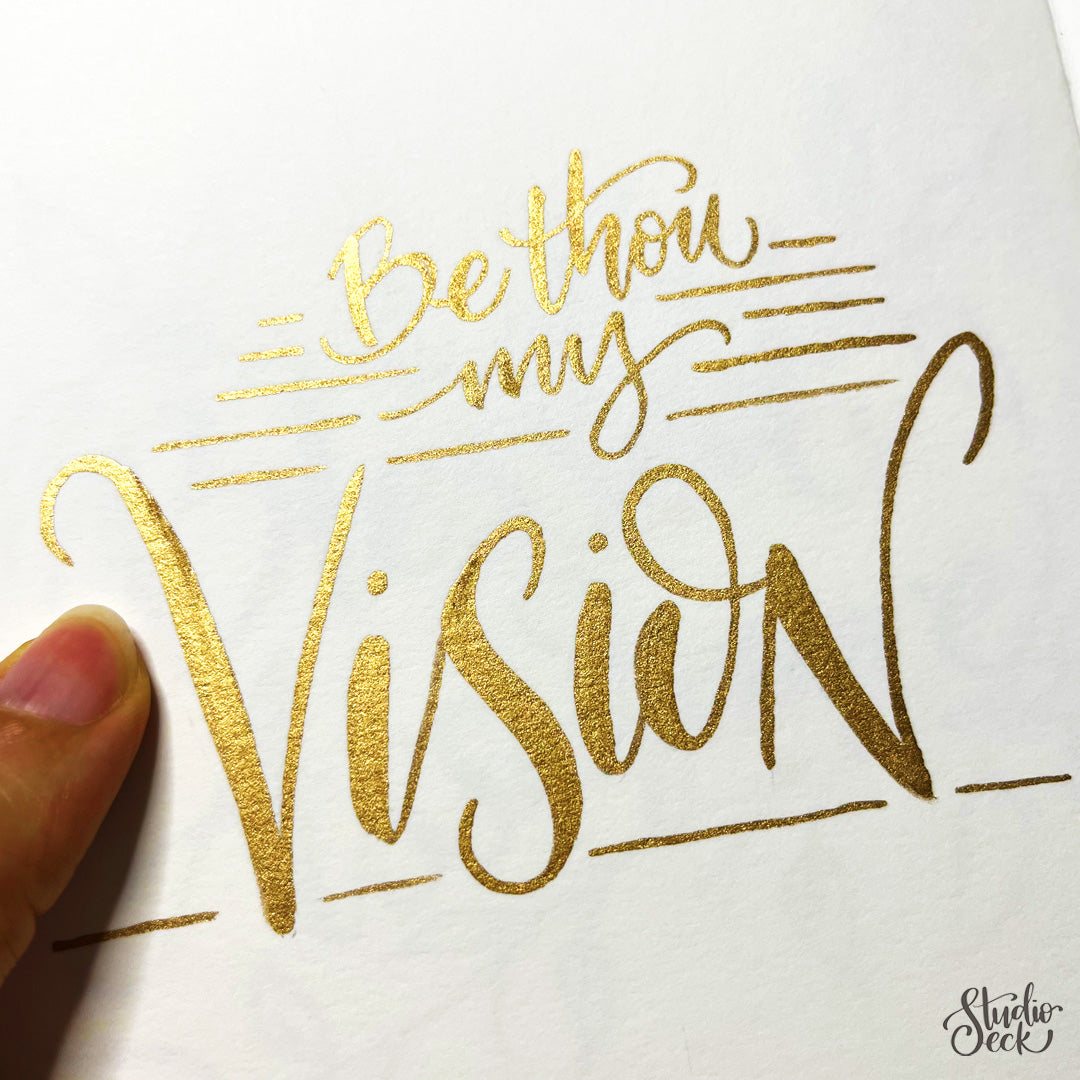 Be thou
my
VisioN
Studio
Seck